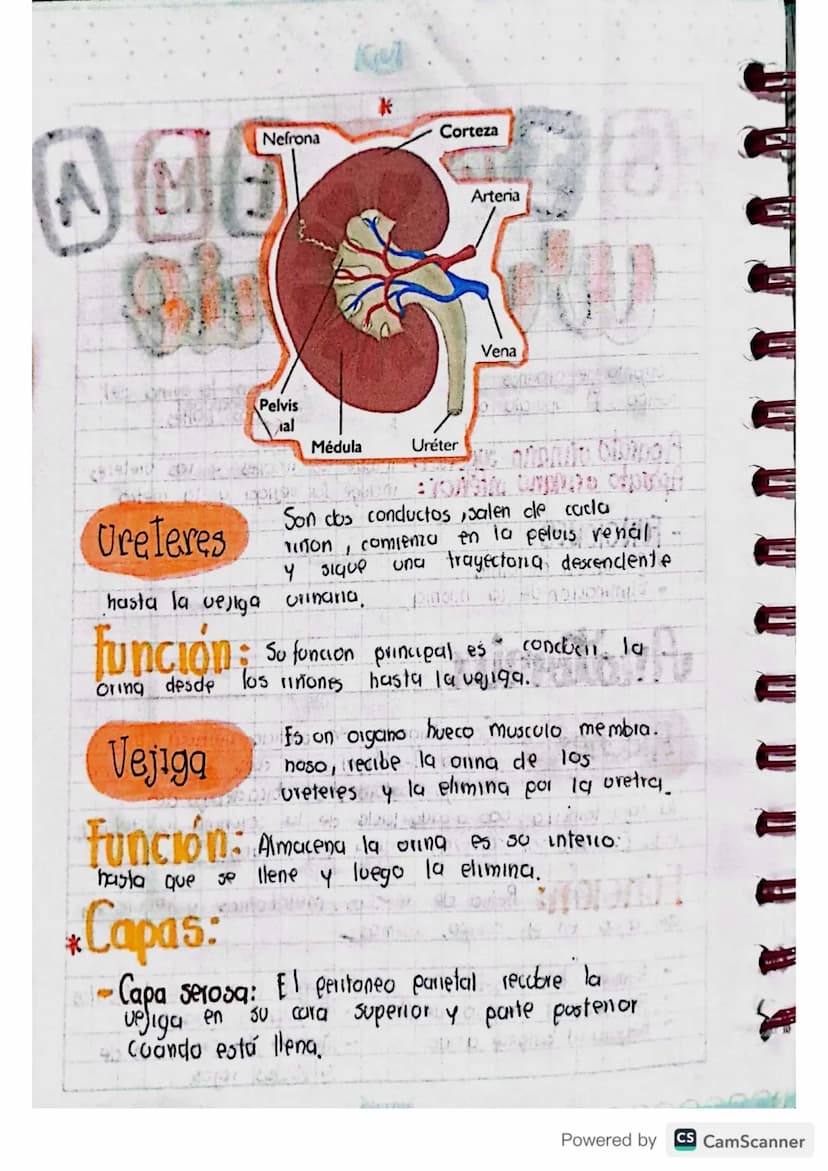 Nefrona
Corteza
Arteria
Vena
Pelvis
ial
Médula
Uréter
Ureteres
Son dos conductos, salen de cada
riñon, comienza en la pelvis renal
y sigue una trayectoria descendente
hasta la vejiga urinaria.
Función: Su funcion principal es conducir la
orina desde los riñones hasta la vejiga.
Vejiga
Es un organo hueco musculo membra.
noso, recibe la orina de los
ureteres y la elimina por la uretra.
Función: Almacena la orina es su interior
hasta que se llene y luego la elimina.
*Capas:
- Capa serosa: El peritoneo parietal recubre la
vejiga en su cara superior y parte posterior
cuando está llena.
Powered by CS CamScanner